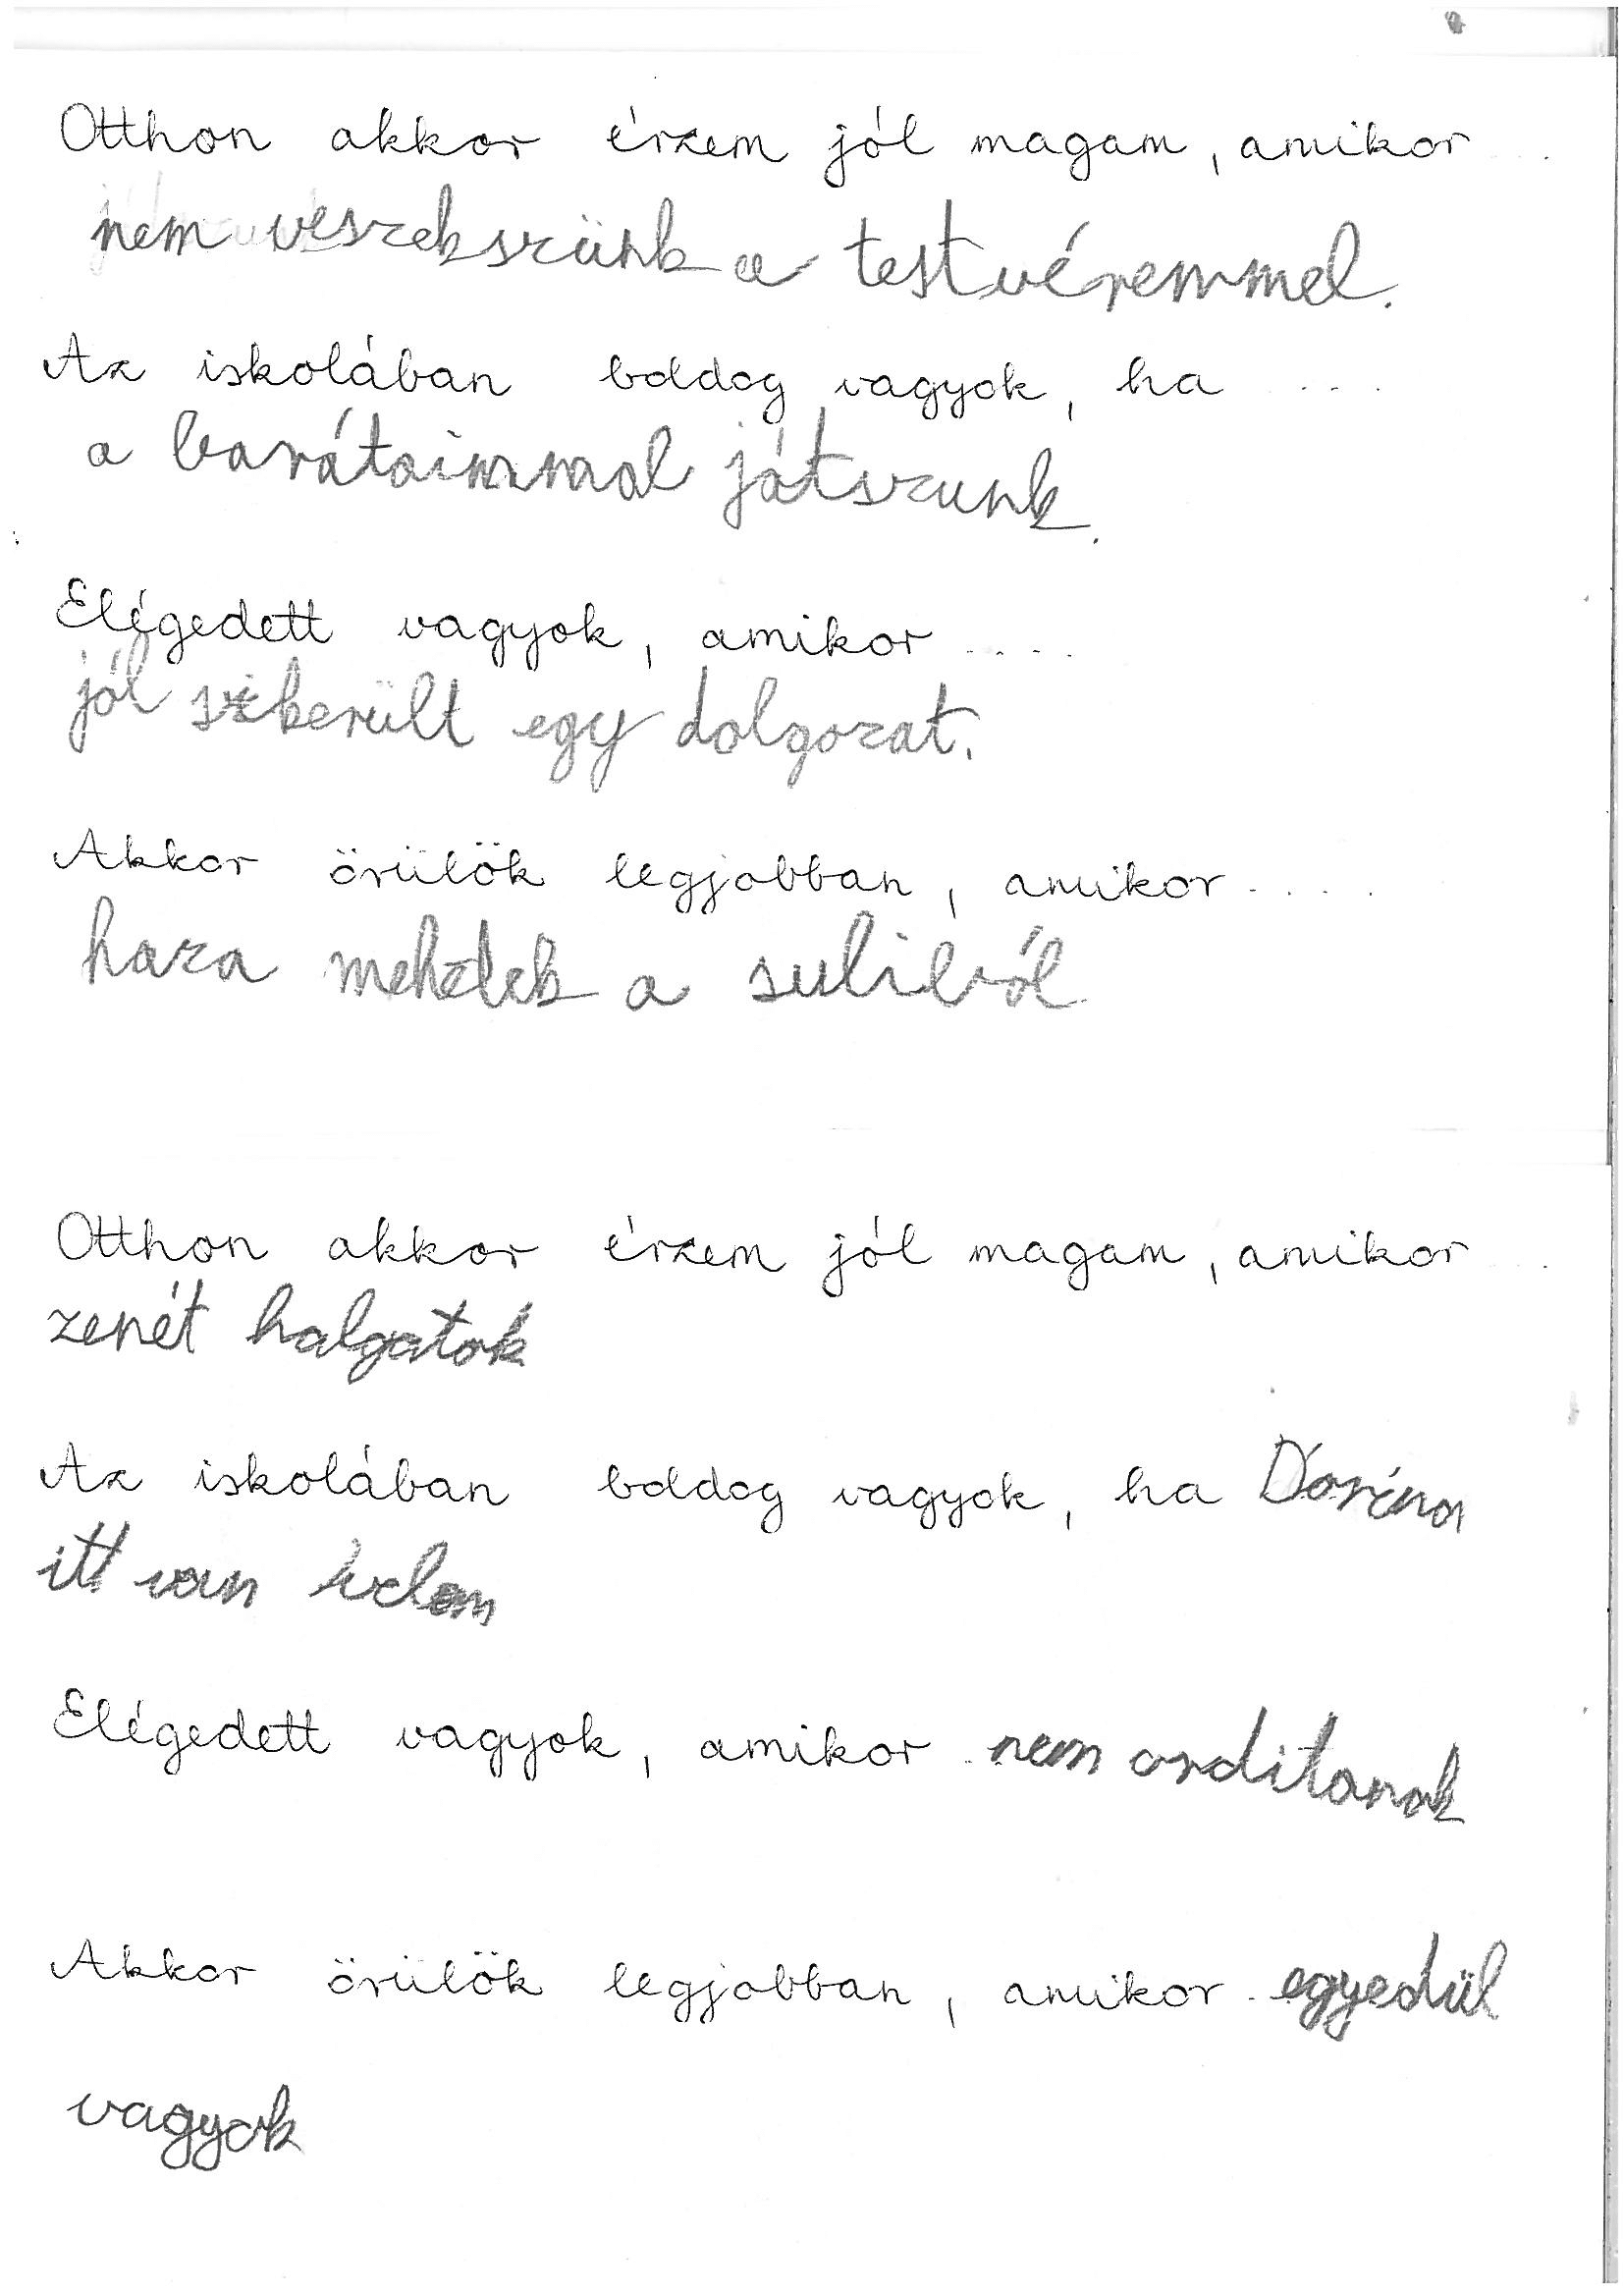 Otthon akkor érzem jól magam, amikor ...
nem veszekszünk a testvéremmel.
Az iskolában boldog vagyok, ha ...
a barátaimmal játszunk.
Elégedett vagyok, amikor ....
jól sikerült egy dolgozat.
Akkor örülök legjobban, amikor ....
haza mehetek a suliból
Otthon akkor érzem jól magam, amikor ...
zenét halgatok
Az iskolában boldog vagyok, ha Dorina
itt van velem
Elégedett vagyok, amikor nem orditanak
Akkor örülök legjobban, amikor egyedül
vagyok